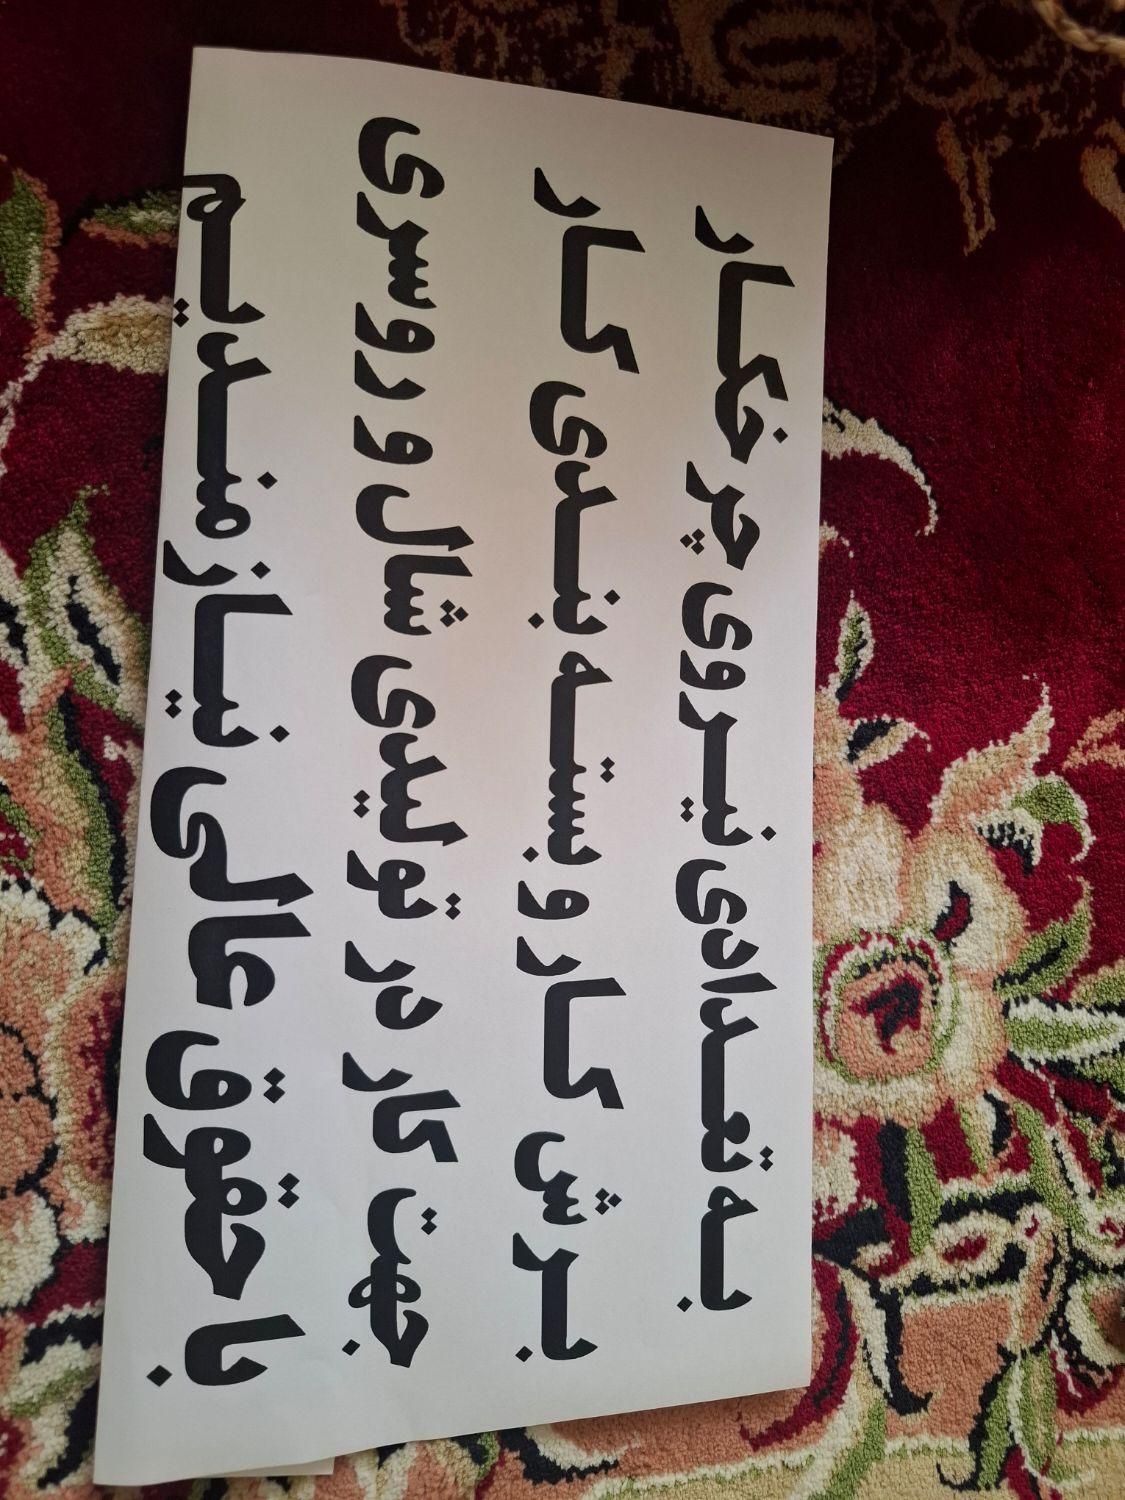 به تعدادی نیروی چرخکار
برش کار و بسته بندی کار
جهت کار در تولیدی شال و روسری
با حقوق عالی نیازمندیم